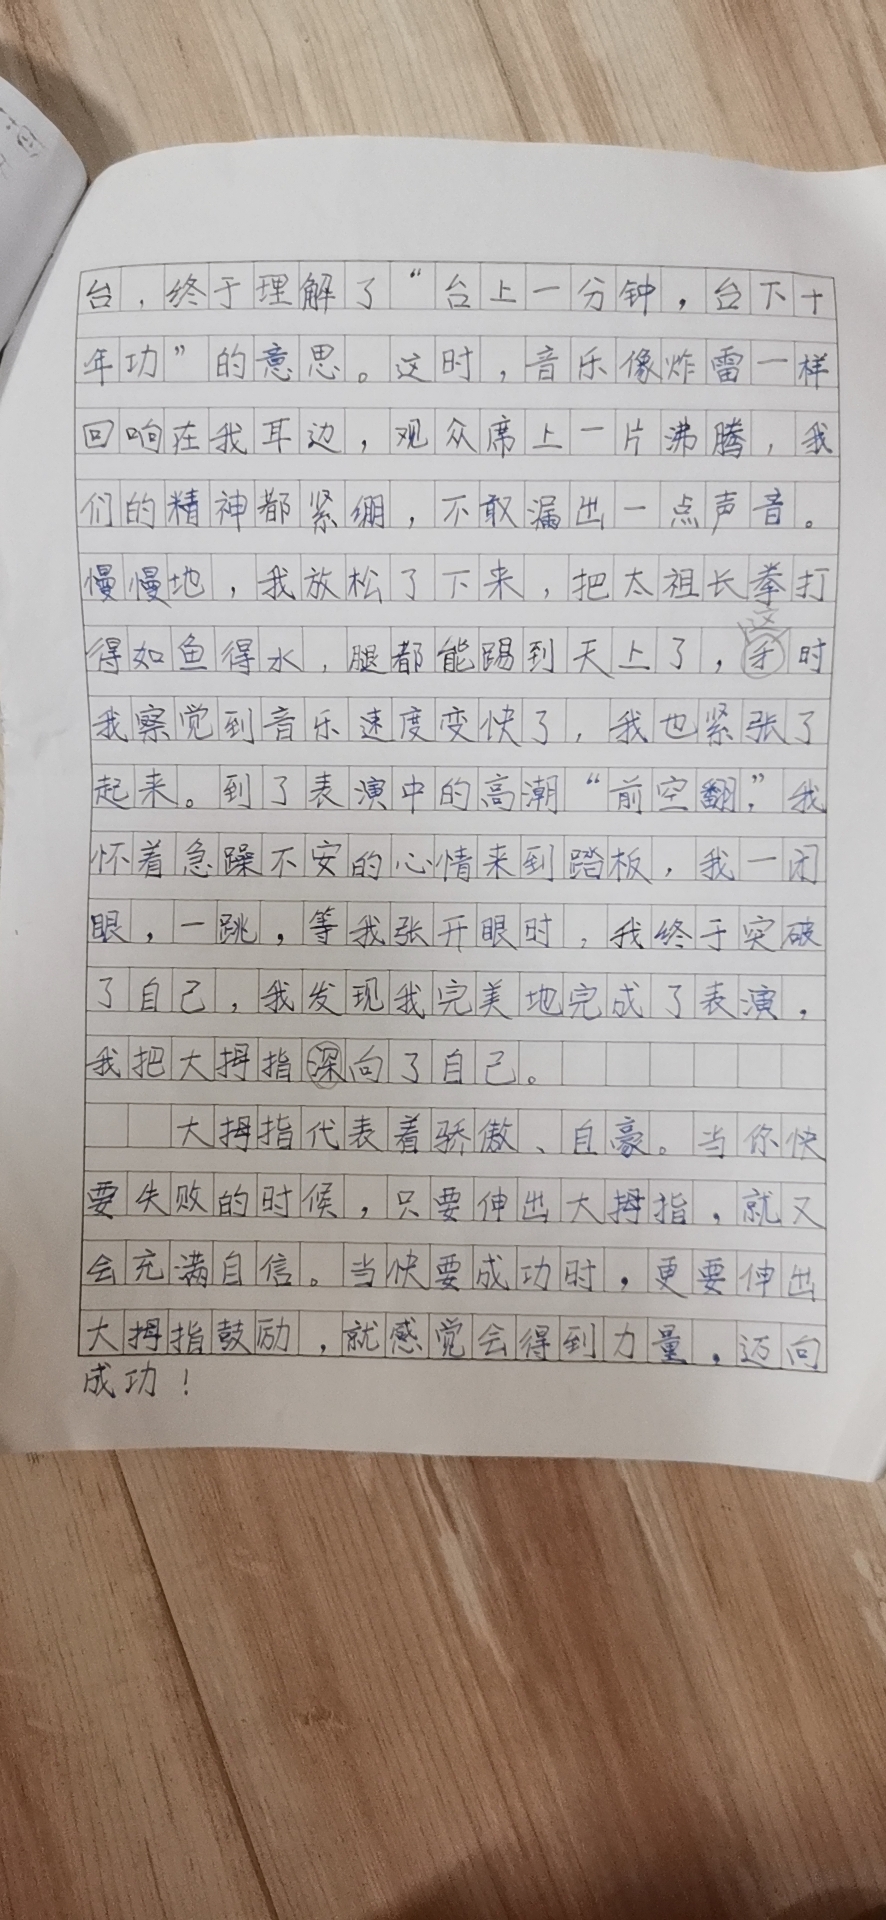 台，终于理解了“台上一分钟，台下十
年功”的意思。这时，音乐像炸雷一样
回响在我耳边，观众席上一片沸腾，我
们的精神都紧绷，不敢漏出一点声音。
慢慢地，我放松了下来，把太祖长拳打
这
得如鱼得水，腿都能踢到天上了，时
我察觉到音乐速度变快了，我也紧张了
起来。到了表演中的高潮“前空翻，”我
怀着急躁不安的心情来到踏板，我一闭
眼，一跳，等我张开眼时，我终于突破
了自己，我发现我完美地完成了表演，
我把大拇指深向了自己。
大拇指代表着骄傲、自豪。当你快
要失败的时候，只要伸出大拇指，就又
会充满自信。当快要成功时，更要伸出
大拇指鼓励，就感觉会得到力量，迈向
成功！